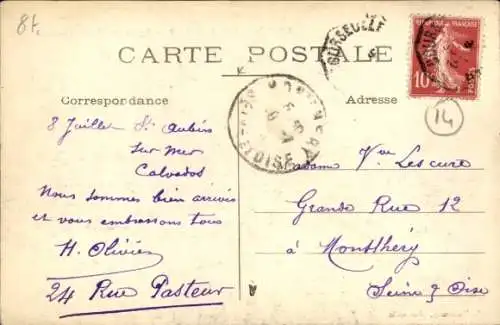 8t.
CARTE POSTALE
Correspondance
Adresse
8 Juillet St Aubin
sur mer
Calvados
Nous sommes bien arrivés
et vous embrassons tous
H. Olivier
24 Rue Pasteur
Madame Vve Lescure
Grande Rue 12
à Montlhéry
Seine & Oise
14
10
OISE